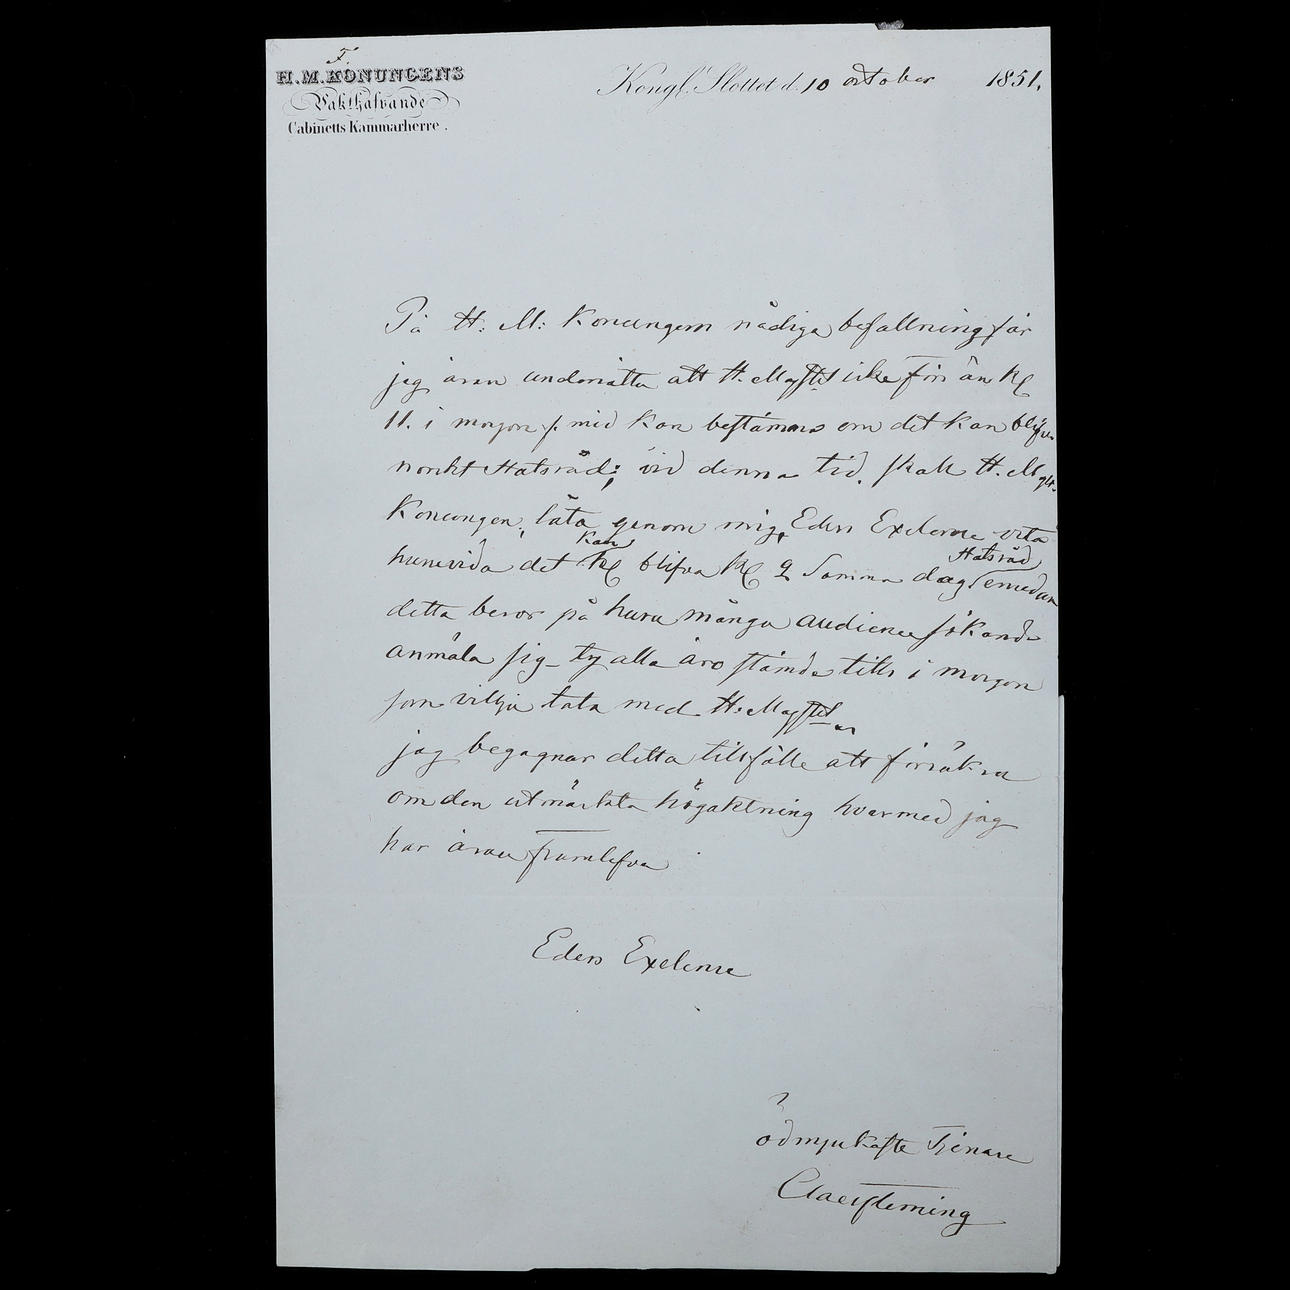 F.
H.M. KONUNGENS
Vakthafvande
Cabinetts Kammarherre.
Kongl. Slottet d. 10 october 1851.
På H: M: Konungens nådiga befallning får
jag äran underrätta att H. Majtet icke förr än Kl
11. i morgon f. mid kan bestämma om det kan blifva
norskt Statsråd; vid denna tid, skall H. Majt.
Konungen, låta genom mig, Eders Exelence veta
huruvida det kan blifva Kl 2 Samma dag Statsråd emedan
detta beror på huru många audience sökande
anmäla sig – ty alla äro stämda till i morgon
som vilja tala med H. Majtet
jag begagnar detta tillfälle att försäkra
om den utmärkta högaktning hvarmed jag
har äran framlefva
Eders Exelence
ödmjukaste Tjenare
Claes Fleming